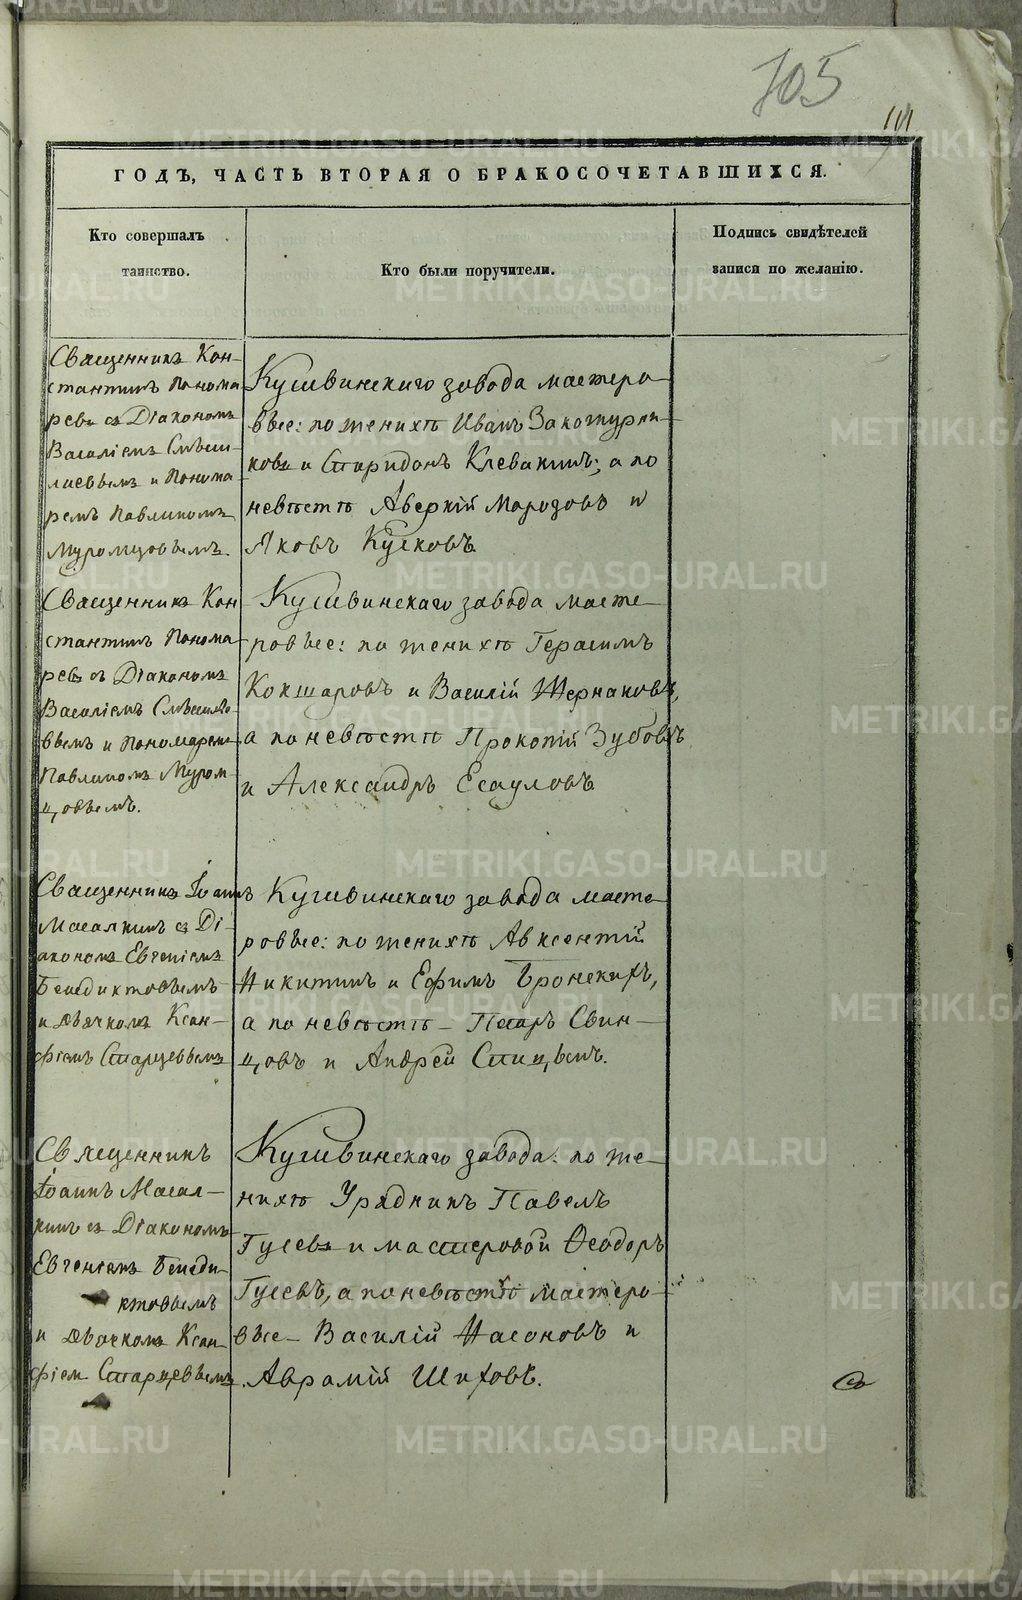 705
ГОДЪ, ЧАСТЬ ВТОРАЯ О БРАКОСОЧЕТАВШИХСЯ.
Кто совершалъ
таинство.
Кто были поручители.
Подпись свидѣтелей
записи по желанію.
Священникъ Кон-
стантинъ Понома
ревъ съ Діакономъ
Василіемъ
и Понома
ремъ Павлиномъ
Муромцовымъ.
Кушвинскаго завода мастеро-
вые: по женихѣ Иванъ Закожурни-
ковъ и Спиридонъ Клевакинъ; а по
невѣстѣ Аверкій Морозовъ и
Яковъ Кусковъ
Священникъ Кон
стантинъ Понома
ревъ съ Діакономъ
Василіемъ
вымъ и Пономаремъ
Павлиномъ Муром
цовымъ.
Кушвинскаго завода масте-
ровые: по женихѣ Герасимъ
Кокшаровъ и Василій Жернаковъ,
а по невѣстѣ Прокопій Зубовъ
и Александръ Есауловъ
Священникъ Іоаннъ
Масалкинъ съ Ді-
акономъ Евгеніемъ
Бенедиктовымъ
и дьячкомъ Ксан-
фіемъ Старцевымъ
Кушвинскаго завода масте-
ровые: по женихѣ Авксентій
Никитинъ и Ефимъ Бронскихъ,
а по невѣстѣ - Петръ Свин-
цовъ и Андрей Спицынъ.
Священникъ
Іоаннъ Масал-
кинъ съ Діакономъ
Евгеніемъ Бенеди-
ктовымъ
и дьячкомъ Ксан-
фіем Старцевымъ
Кушвинскаго завода: по же-
нихѣ Урядникъ Павелъ
Гусевъ и мастеровой Ѳеодоръ
Гусевъ, а по невѣстѣ мастеро-
вые - Василій Насоновъ и
Аврамій Шиховъ.
METRIKI.GASO-URAL.RU